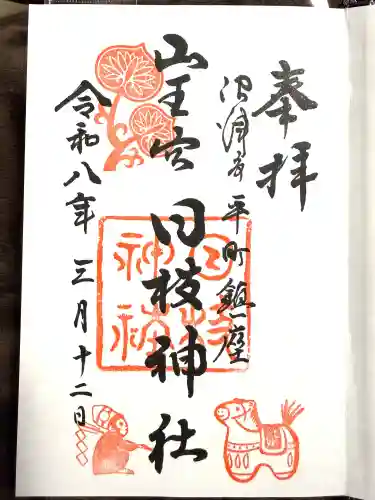 奉拝
沼津市平町鎮座
山王宮 日枝神社
令和八年 三月十二日
日枝
神社